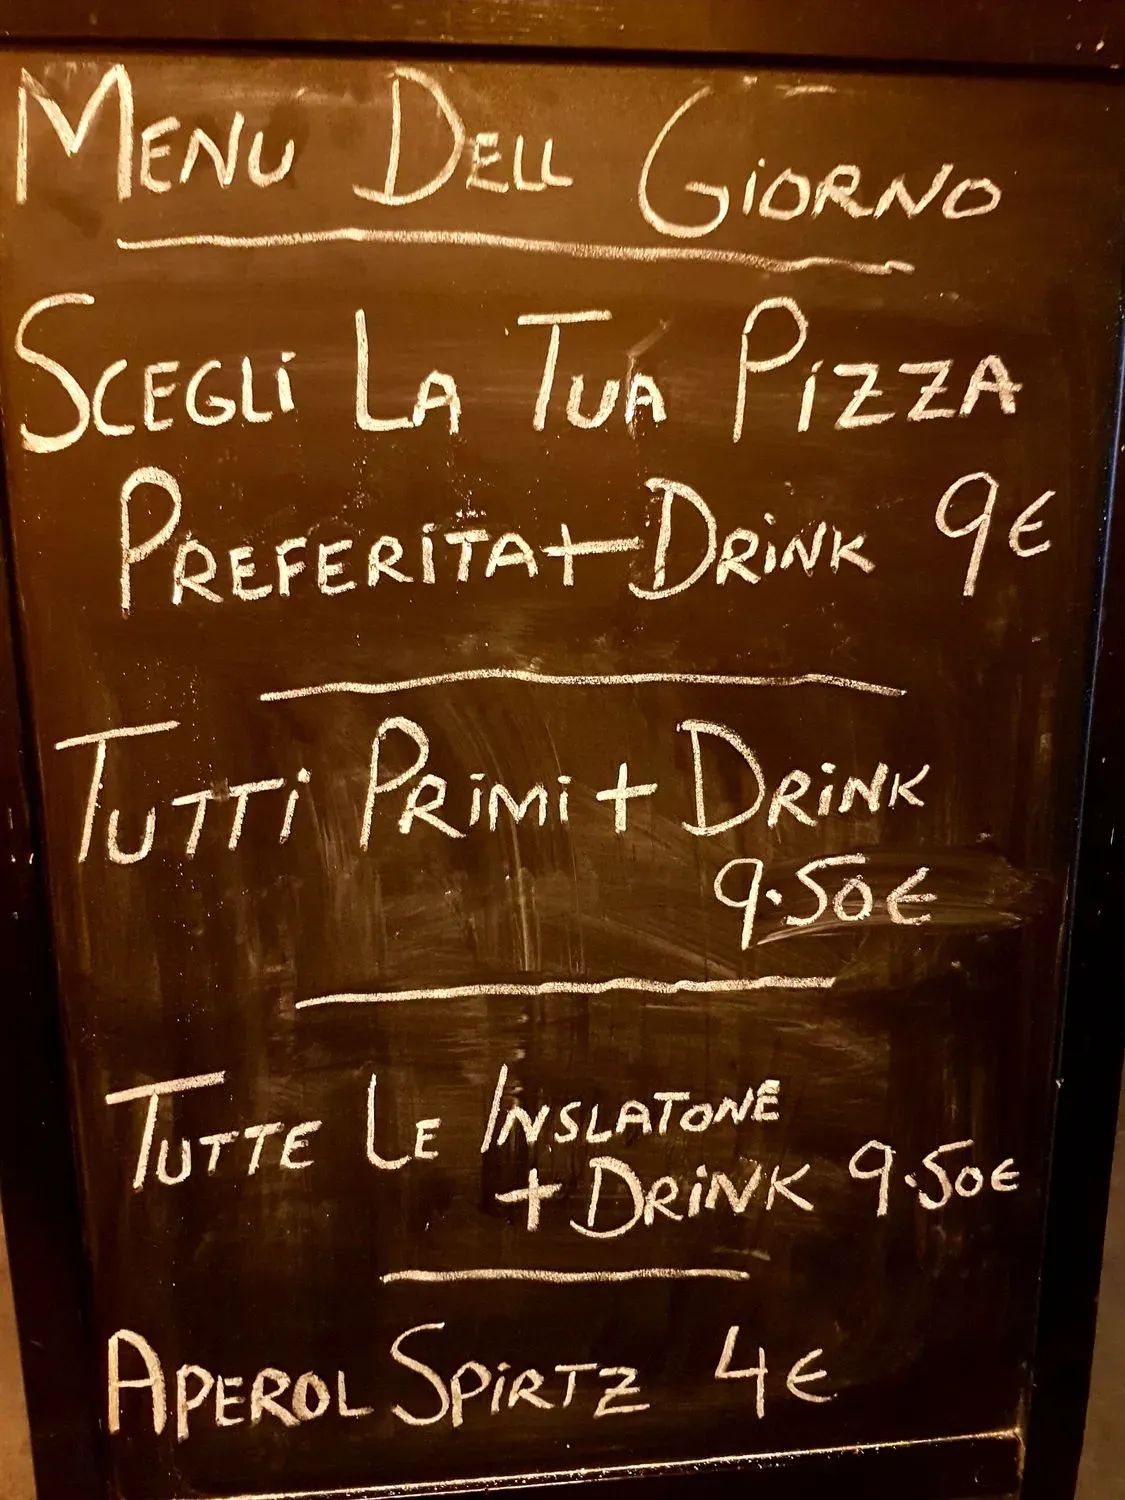 MENU DELL GIORNO
SCEGLI LA TUA PIZZA
PREFERITA+DRINK 9€
TUTTI PRIMI + DRINK
9.50€
TUTTE LE INSLATONE
+ DRINK 9.50€
APEROL SPIRTZ 4€